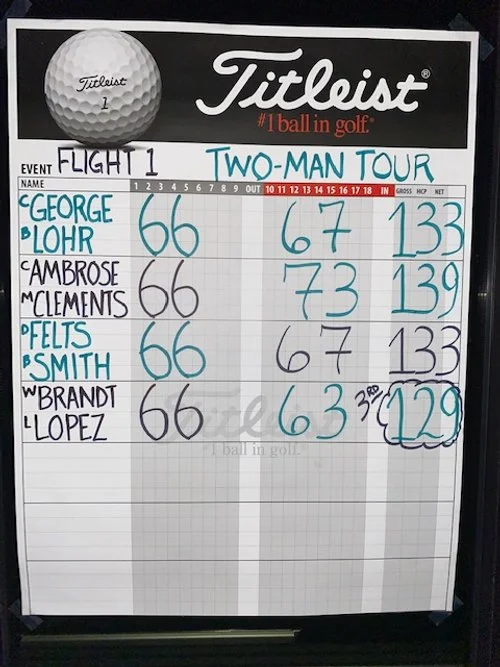 Titleist
1
Titleist®
#1 ball in golf.®
EVENT FLIGHT 1 TWO-MAN TOUR
NAME 1 2 3 4 5 6 7 8 9 OUT 10 11 12 13 14 15 16 17 18 IN GROSS HCP NET
C GEORGE
B LOHR 66 67 133
C AMBROSE
M CLEMENTS 66 73 139
D FELTS
B SMITH 66 67 133
W BRANDT
L LOPEZ 66 63 3RD 129
Titleist
#1 ball in golf.